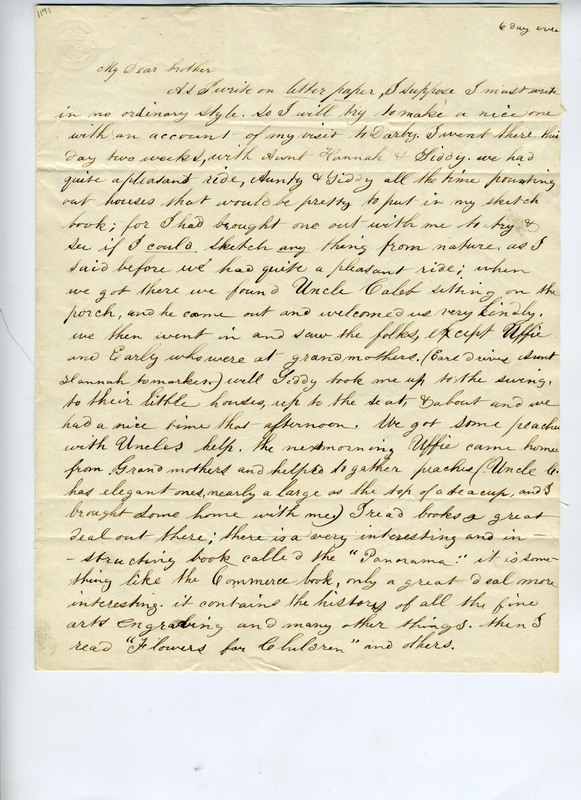 1191
6 day eve
My Dear brother
As I write on letter paper, I suppose I must write
in no ordinary style. so I will try to make a nice one
with an account of my visit to Darby. I went there this
day two weeks, with Aunt Hannah & Giddy. we had
quite a pleasant ride, Aunty & Giddy all the time pointing
out houses that would be pretty to put in my sketch
book; for I had brought one out with me to try &
see if I could sketch any thing from nature. as I
said before we had quite a pleasant ride; when
we got there we found Uncle Caleb sitting on the
porch, and he came out and welcomed us very kindly.
we then went in and saw the folks, except Uffie
and Early who were at grandmothers. (Earl drives Aunt
Hannah to market) well Giddy took me up to the swing,
to their little houses, up to the seat, & about and we
had a nice time that afternoon. We got some peaches
with Uncles help. the next morning Uffie came home
from Grandmothers and helped to gather peaches (Uncle C.
has elegant ones, nearly a large as the top of a teacup, and I
brought some home with me) I read books a great
deal out there; there is a very interesting and in-
-structing book called the "Panorama." it is some-
thing like the Commerce book, only a great deal more
interesting. it contains the history of all the fine
arts engraving and many other things. then I
read "Flowers for Children" and others.